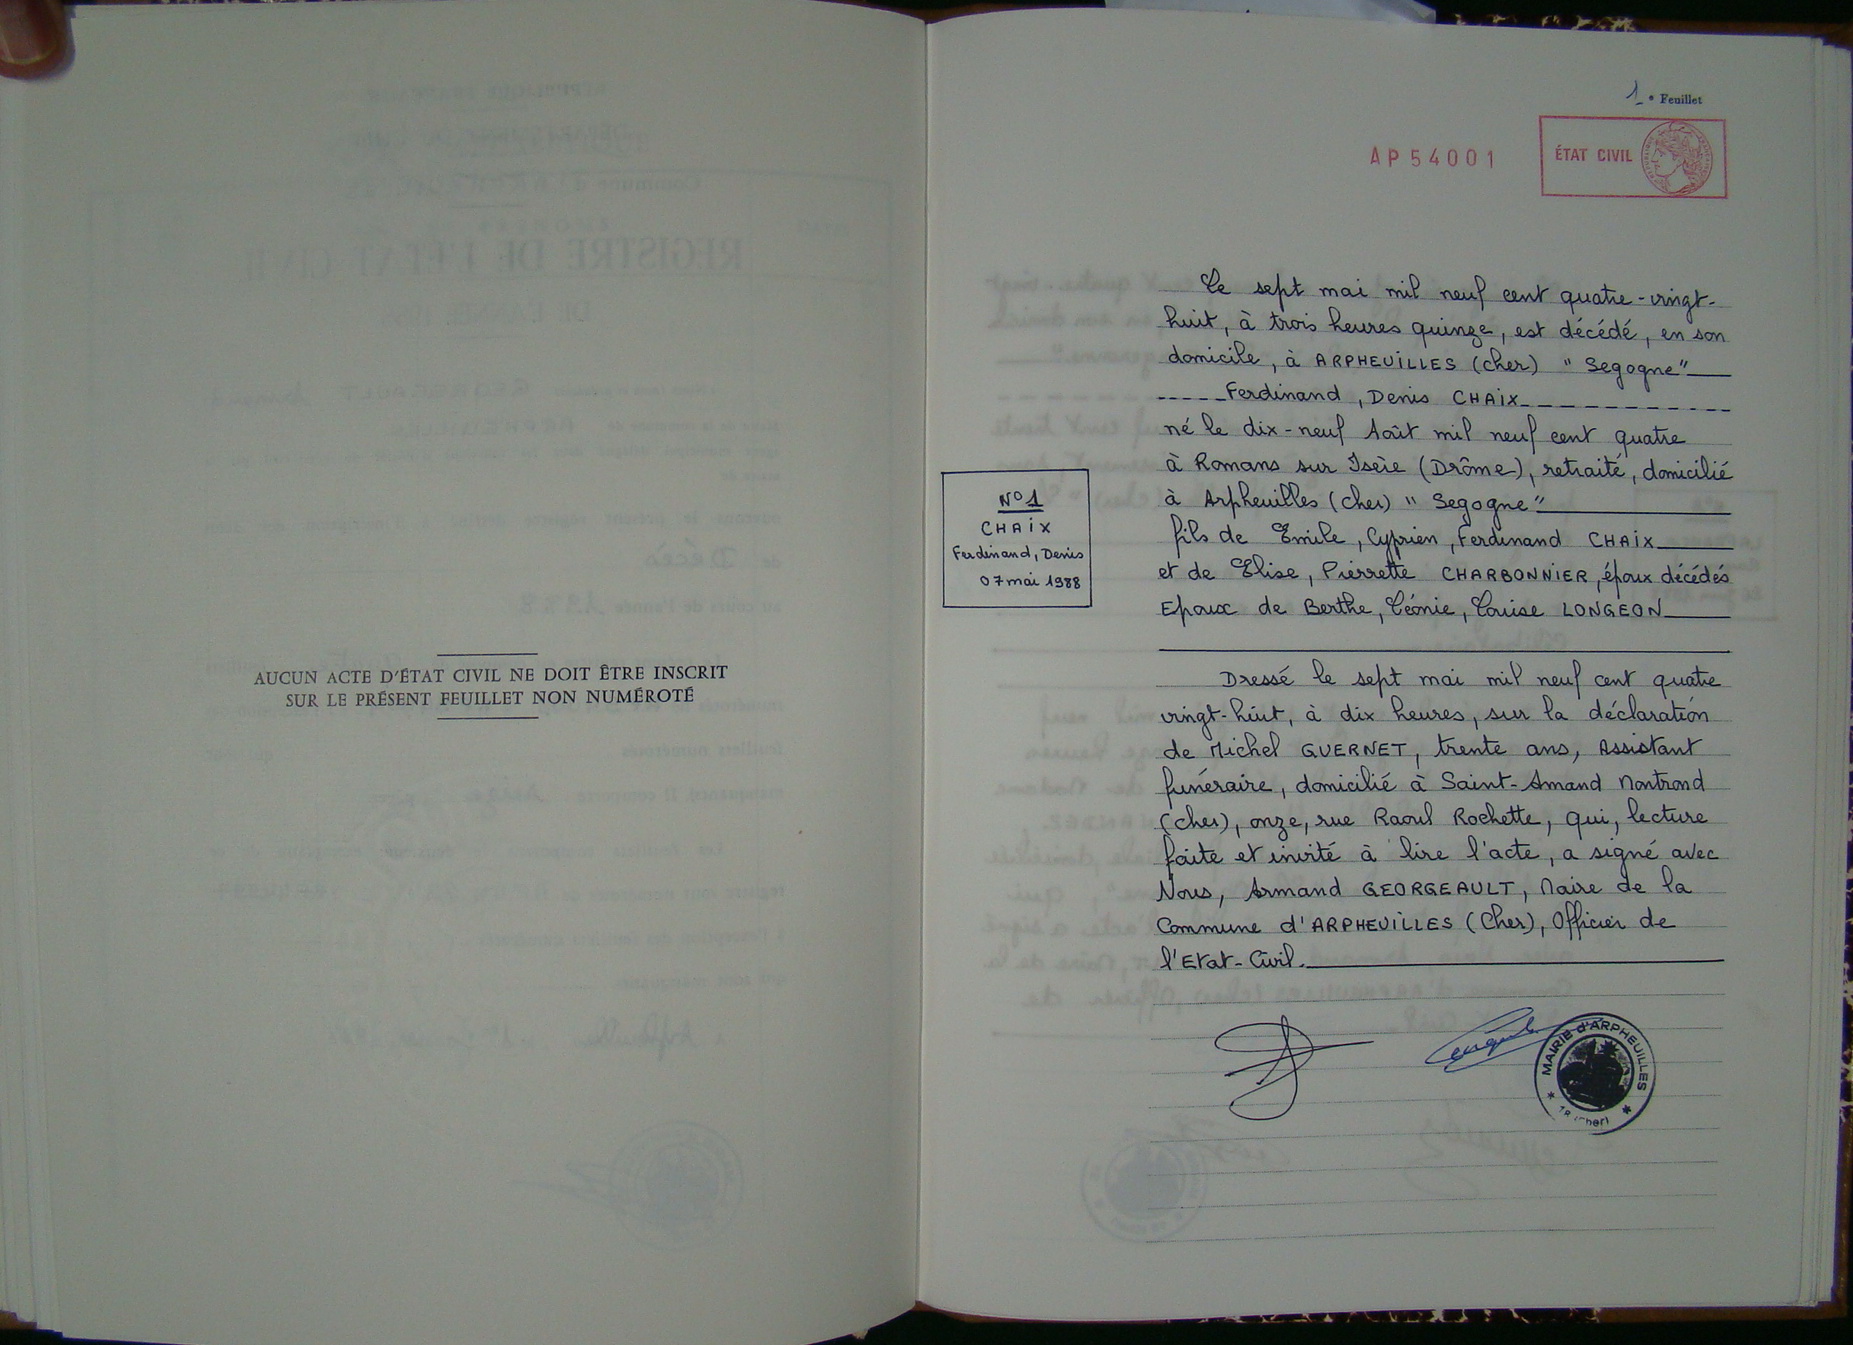 AUCUN ACTE D'ÉTAT CIVIL NE DOIT ÊTRE INSCRIT
SUR LE PRÉSENT FEUILLET NON NUMÉROTÉ
1e Feuillet
AP54001
ÉTAT CIVIL
N° 1
CHAIX
Ferdinand, Denis
07 mai 1988
Le sept mai mil neuf cent quatre-vingt-
huit, à trois heures quinze, est décédé, en son
domicile, à ARPHEUILLES (Cher) "Segogne"
Ferdinand, Denis CHAIX
né le dix-neuf Août mil neuf cent quatre
à Romans sur Isère (Drôme), retraité, domicilié
à Arpheuilles (Cher) "Segogne"
fils de Emile, Cyprien, Ferdinand CHAIX
et de Elise, Pierrette CHARBONNIER, époux décédés
Epoux de Berthe, Léonie, Louise LONGEON
Dressé le sept mai mil neuf cent quatre
vingt-huit, à dix heures, sur la déclaration
de Michel GUERNET, trente ans, Assistant
funéraire, domicilié à Saint-Amand Montrond
(Cher), onze, rue Raoul Rochette, qui, lecture
faite et invité à lire l'acte, a signé avec
Nous, Armand GEORGEAULT, Maire de la
Commune d'ARPHEUILLES (Cher), Officier de
l'Etat-Civil.
MAIRIE d'ARPHEUILLES